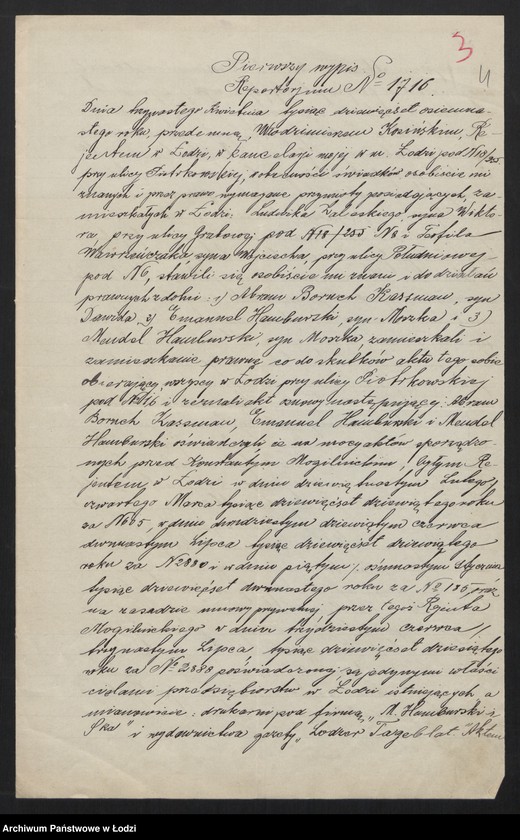 3
4
Pierwszy wypis.
Repertorjum No 1716.
Dnia trzynastego Kwietnia tysiąc dziewięćset osiemna-
stego roku, przedemną, Włodzimierzem Kosińskim, Re-
jentem w Łodzi, w kancelarji mojej w m. Łodzi pod N18/255
przy ulicy Piotrkowskiej, w obecności świadków osobiście mi
znanych i przez prawo wymagane przymioty posiadających, za-
mieszkałych w Łodzi: Ludwika Zaleskiego, syna Wikto-
ra, przy ulicy Grabowej pod i Teofila
Wawrzeńczaka, syna Wojciecha, przy ulicy Południowej
pod N6, stawili się osobiście mi znani i do działań
prawnych zdolni: 1) Abram Boruch Kassman, syn
Dawida, 2) Emanuel Hamburski, syn Moszka i 3)
Mendel Hamburski, syn Moszka, zamieszkali i
zamieszkanie prawne co do skutków aktu tego sobie
obierający wszyscy w Łodzi przy ulicy Piotrkowskiej
pod i zeznali akt osnowy następującej: Abram
Boruch Kassman, Emanuel Hamburski i Mendel
Hamburski oświadczyli, że na mocy aktów sporządzo-
nych przed Konstantym Mogilnickim, byłym Re-
jentem w Łodzi w dniu dziewiętnastym Lutego/
czwartego Marca tysiąc dziewięćset dziewiątego roku
za w dniu dwudziestym dziewiątym czerwca
dwunastym Lipca tysiąc dziewięćset dziewiątego
roku za N2880 i w dniu piątym/ osiemnastym Stycznia
tysiąc dziewięćset dwunastego roku za No 185 oraz
na zasadzie umowy prywatnej przez tegoż Rejenta
Mogilnickiego w dniu trzydziestym czerwca/
trzynastym Lipca tysiąc dziewięćset dziesiątego
roku za No 2888 poświadczonej, są jedynymi właści-
cielami przedsiębiorstw w Łodzi istniejących a
mianowicie: drukarni pod firmą „M. Hamburski i
S-ka" i wydawnictwa gazety „Lodzer Tageblat". Aktem
Archiwum Państwowe w Łodzi